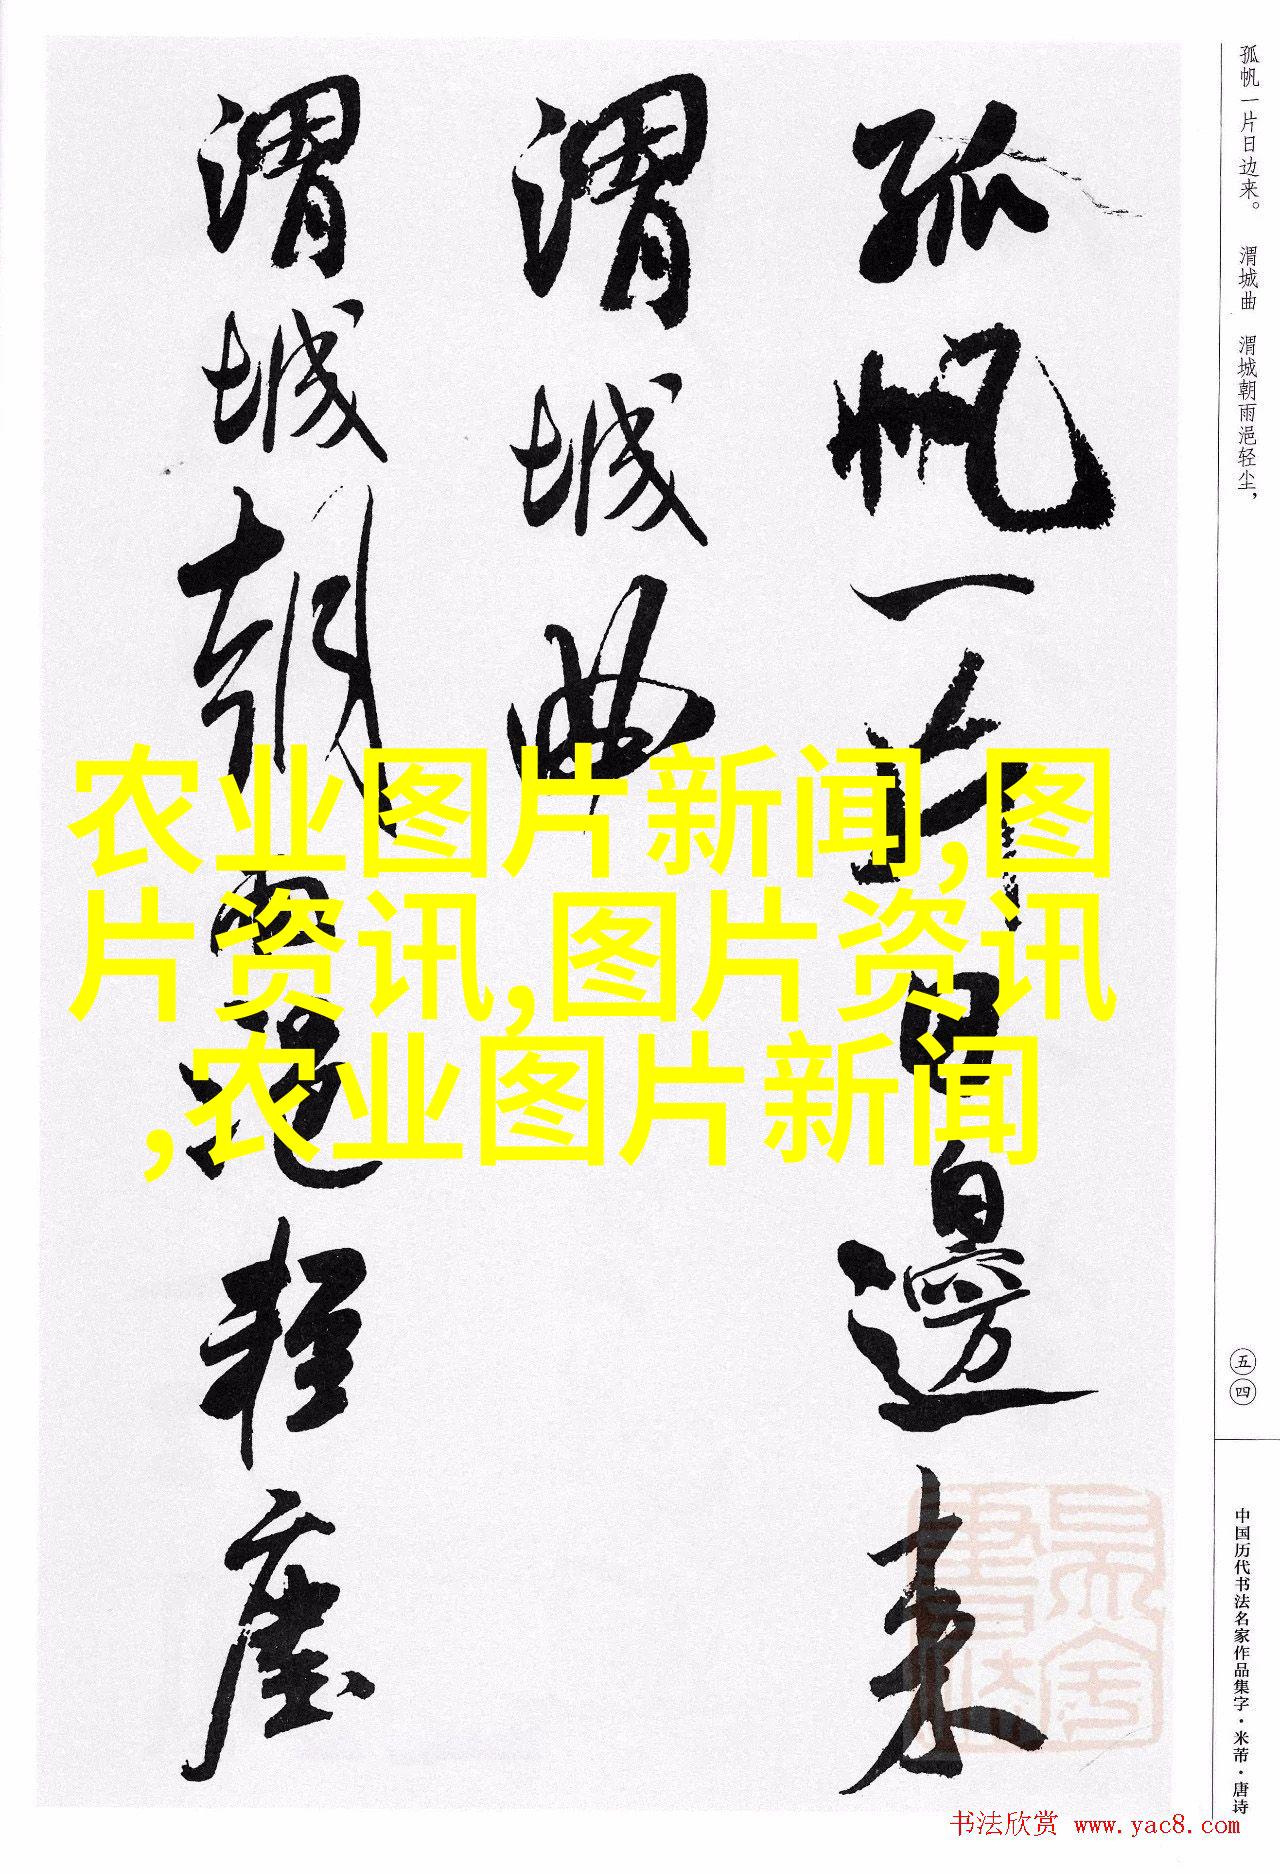 孤帆一片日边来。 渭城曲 渭城朝雨浥轻尘，
五四
中国历代书法名家作品集字·米芾·唐诗
孤帆一片日邊来
渭城曲
渭城朝雨浥輕塵
农业图片新闻,图
片资讯,图片资讯
,农业图片新闻
书法欣赏 www.yac8.com